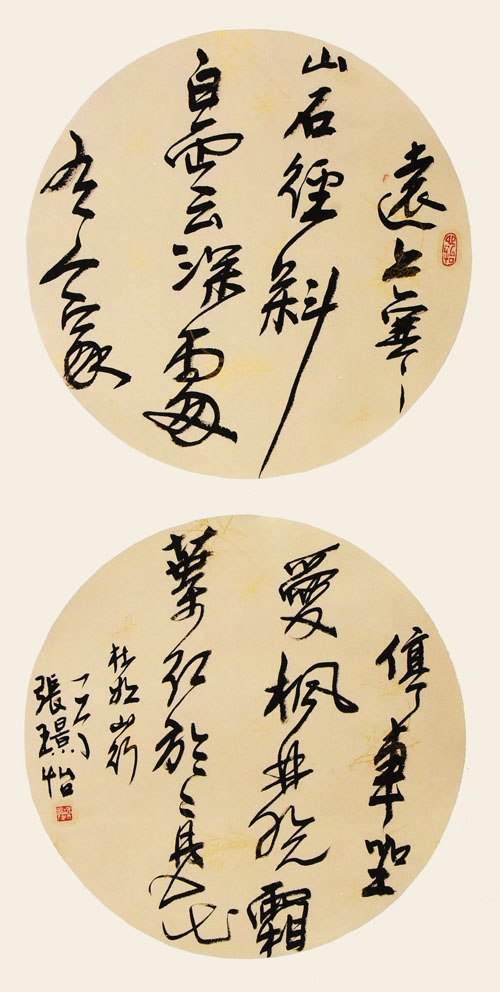 遠上寒
山石徑斜
白雲深處
有人家
停車坐
愛楓林晚霜
葉紅於二月花
杜牧山行
張璟怡